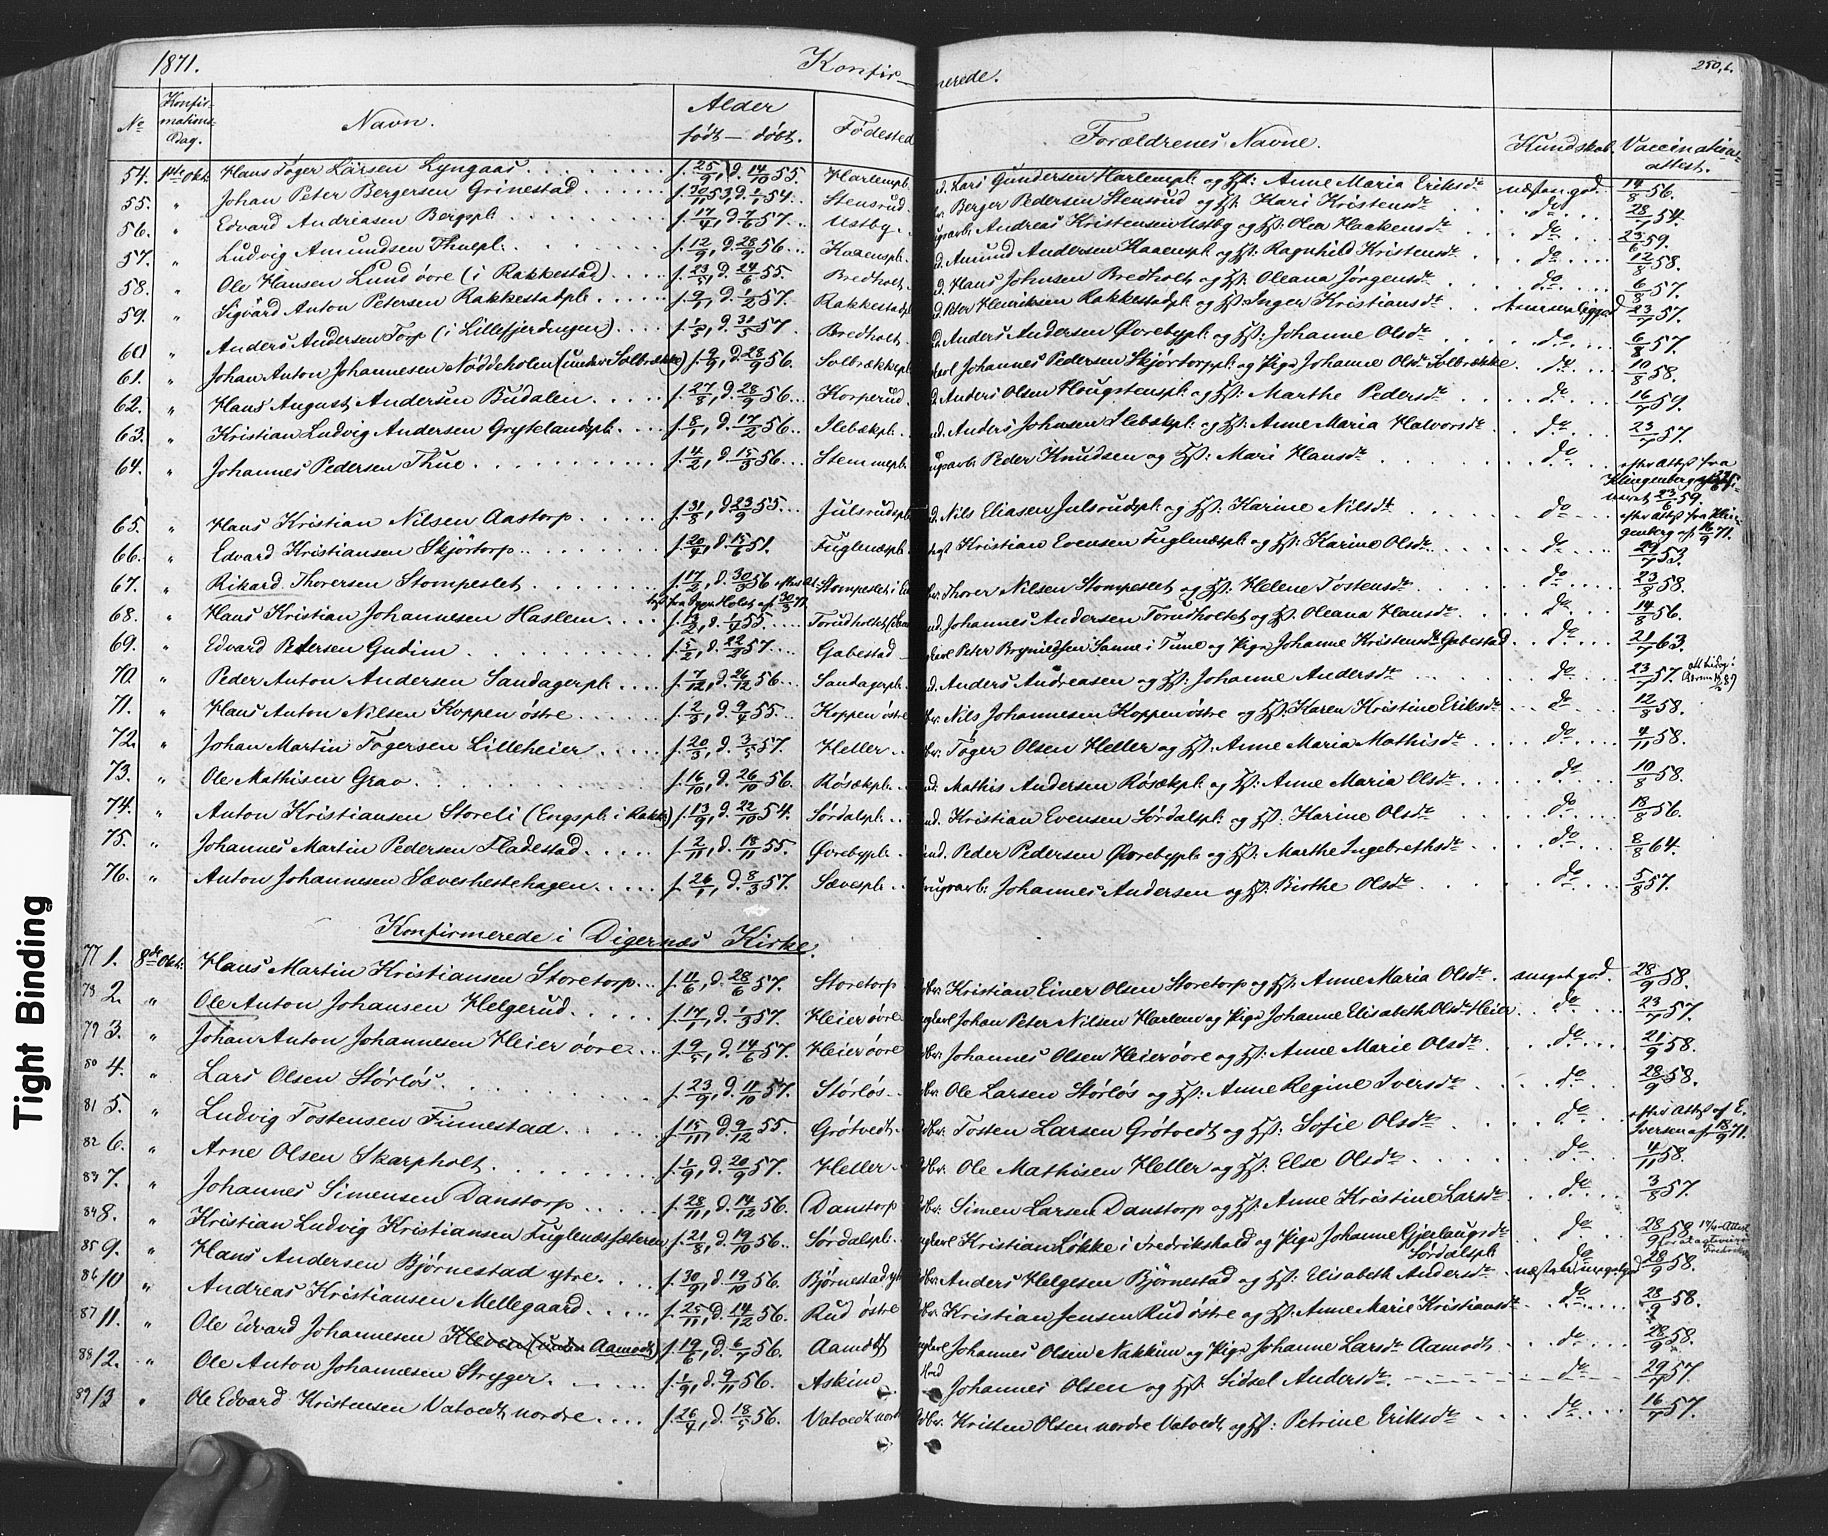 1871. Konfirmerede. 250,b.
No Konfirmations Dag. Navn. Alder født — døbt. Fødested Forældrenes Navne. Kundskab. Vaccinationsattest.
54. 1ste Okt. Hans Tøger Larsen Lyngaas f. 25/9, d. 14/10 55 Harlempl. Lars Gundersen Harlempl. og Hst: Anne Maria Eriksdtr næstan god 14/8 56.
55. " Johan Peter Bergersen Grinestad f. 30/11 53, d. 1/1 54. Stensrud Berger Pedersen Stensrud og Hst: Kari Kristensdtr do 28/7 54.
56. " Edvard Andriasen Bergpl. f. 17/4, d. 7/6 57. Ustby Andreas Kristensen Ustby og Hst: Olea Haakensdtr do 23/6 59.
57. " Ludvig Amundsen Thuepl. f. 12/9, d. 28/9 56. Kaaenspl. Amund Andersen Kaaenspl. og Hst: Ragnhild Kristensdtr do 12/8 58.
58. " Ole Hansen Lund øvre (i Rakkestad) f. 23/5, d. 24/6 55. Bredholt Hans Johnsen Bredholt og Hst: Oleana Jørgensdtr do 6/8 57.
59. " Sigvard Anton Petersen Rakkestadpl. f. 9/1, d. 1/2 57. Rakkestad Peter Henriksen Rakkestadpl. og Hst: Inger Kristiansdtr 23/7 57.
60 " Anders Andersen Torp (i Lillefjerdingen) f. 1/3, d. 31/5 57 Bredholt Anders Andersen Øvrebypl. og Hst: Johanne Olsdtr do 6/8 57.
61. " Johan Anton Johannesen Nøddeholen (under Solbrække) f. 9/9, d. 28/9 56. Solbrækkepl. Johannes Pedersen Skjørtorppl. og Pige Johanne Olsdtr Solbrække. do 10/8 58.
62. " Hans August Andersen Budalen f. 27/8, d. 28/9 56. Korperud Anders Olsen Hougstenspl. og Hst: Marthe Pedersdtr do 16/7 59.
63. " Kristian Ludvig Andersen Grytelandspl. f. 8/1, d. 17/2 56. Slebækpl. Anders Johnsen Slebækpl. og Hst: Anne Maria Halvorsdtr do 23/7 57.
64. " Johannes Pedersen Thue f. 4/2, d. 15/3 56. Stemmepl. Peder Knudsen og Hst: Mari Hansdtr do efter Attst fra Klingenberg 23/6 59.
65. " Hans Kristian Nilsen Aastorp f. 31/8, d. 23/9 55. Julsrudspl. Nils Eliasen Julsrudspl. og Hst: Karine Nilsdtr do efter Attst fra Klingenberg af 16/9 71.
66. " Edvard Kristiansen Skjørtorp f. 20/4, d. 15/6 51. Fuglenæspl. Kristian Evensen Fuglenæspl. og Hst: Karine Olsdtr do 27/7 53.
67. " Rikard Thorersen Stompeslet f. 17/2, d. 30/3 56 Stompeslet i Thorer Nilsen Stompeslet og Hst: Helene Tostensdtr do 23/8 58.
68. " Hans Kristian Johannesen Haslem d. 1/4 55. Torudholtet Johannes Andersen Torudholtet og Hst: Oleana Hansdtr do 14/8 56.
69. " Edvard Petersen Gudim d. 22/2 57. Gabestad Peter Brynildsen Sanne i Tune og Pige Johanne Kristensdtr Gabestad do 21/7 63.
70 " Peder Anton Andersen Sandagerpl. f. 7/12, d. 26/12 56. Sandagerpl. Anders Andreasen og Hst: Johanne Andersdtr do 23/7 57.
71. " Hans Anton Nilsen Koppen østre f. 2/3, d. 9/4 55. Koppen østre Nils Johannesen Koppen østre og Hst: Karen Kristine Eriksdtr do 12/8 58.
72. " Johan Martin Tøgersen Lilleheier f. 20/3, d. 3/5 57. Heller Tøger Olsen Heller og Hst: Anne Maria Mathisdtr do 4/11 58.
73. " Ole Mathisen Grav f. 16/10, d. 26/10 56. Røsækpl. Mathis Andersen Røsækpl. og Hst: Anne Maria Olsdtr do 10/8 58.
74. " Anton Kristiansen Storeli (Engspl. i Rakk.) f. 13/9, d. 22/10 54. Sørdalspl. Kristian Evensen Sørdalspl. og Hst: Karine Olsdtr do 18/8 56.
75. " Johannes Martin Pedersen Fladestad f. 2/11, d. 18/11 55. Øvrebypl. Peder Pedersen Øvrebypl. og Hst: Marthe Ingebrethsdtr do 8/8 64.
76. " Anton Johannesen Sæveshestehagen f. 26/1, d. 8/3 57. Sævespl. Johannes Andersen og Hst: Birthe Olsdtr do 5/8 57.
Konfirmerede i Digernæs Kirke.
77 1. 8de Okt. Hans Martin Kristiansen Storetorp f. 11/6, d. 28/6 57. Storetorp Kristian Einer Olsen Storetorp og Hst: Anne Maria Olsdtr meget god 28/9 58.
78 2. " Ole Anton Johansen Helgerud f. 17/1, d. 1/3 57. Heier øvre Johan Peter Nilsen Harlem og Pige Johanne Elisabeth Olsdtr Heier do 23/7 57.
79 3. " Johan Anton Johannesen Heier øvre f. 9/5, d. 14/6 57. Heier øvre Johannes Olsen Heier øvre og Hst: Anne Marie Olsdtr do 21/9 58.
80 4. " Lars Olsen Størløs f. 23/9, d. 11/10 57. Størløs Ole Larsen Størløs og Hst: Anne Regine Iversdtr do 28/9 58.
81 5. " Ludvig Tostensen Finnestad f. 15/11, d. 9/12 55. Grøtvedt Tosten Larsen Grøtvedt og Hst: Sofie Olsdtr do efter Attst af E. Iversen af 18/9 71.
82 6. " Arne Olsen Skarpholt f. 1/9, d. 20/9 57. Heller Ole Mathisen Heller og Hst: Else Olsdtr do 4/11 58.
83 7. " Johannes Simensen Danstorp f. 28/11, d. 14/12 56. Danstorp Simen Larsen Danstorp og Hst: Anne Kristine Larsdtr do 3/8 57.
84 8. " Kristian Ludvig Kristiansen Fuglenæssæteren f. 21/8, d. 19/10 56. Sørdalspl. Kristian Løkke i Fredrikshald og Pige Johanne Gjerlaugsdtr Sørdalspl. do 28/9 58
85 9. " Hans Andersen Bjørnestad ytre f. 30/9, d. 19/10 56. Bjørnestad yt Anders Helgesen Bjørnestad og Hst: Elisabeth Andersdtr næsten meget god 28/9 58.
86 10 " Andreas Kristiansen Mellegaard f. 25/11, d. 14/12 56. Rud østre Kristian Jensen Rud østre og Hst: Anne Marie Kristiansdtr do 28/9 58.
87 11. " Ole Edvard Johannesen Kleven (under Aamodt) f. 19/6, d. 6/7 56. Aamodt Johannes Olsen Nakkim og Pige Johanne Larsdtr Aamodt do 28/9 58.
88 12. " Ole Anton Johannesen Stryger f. 1/9, d. 9/11 56. Askim Johannes Olsen og Hst: Sidsel Andersdtr do 29/7 57.
89 13 " Ole Edvard Kristensen Vatvedt nordre f. 26/4, d. 18/5 56. Vatvedt nord Kristen Olsen nordre Vatvedt og Hst: Petrine Eriksdtr do 16/7 57.
Tight Binding